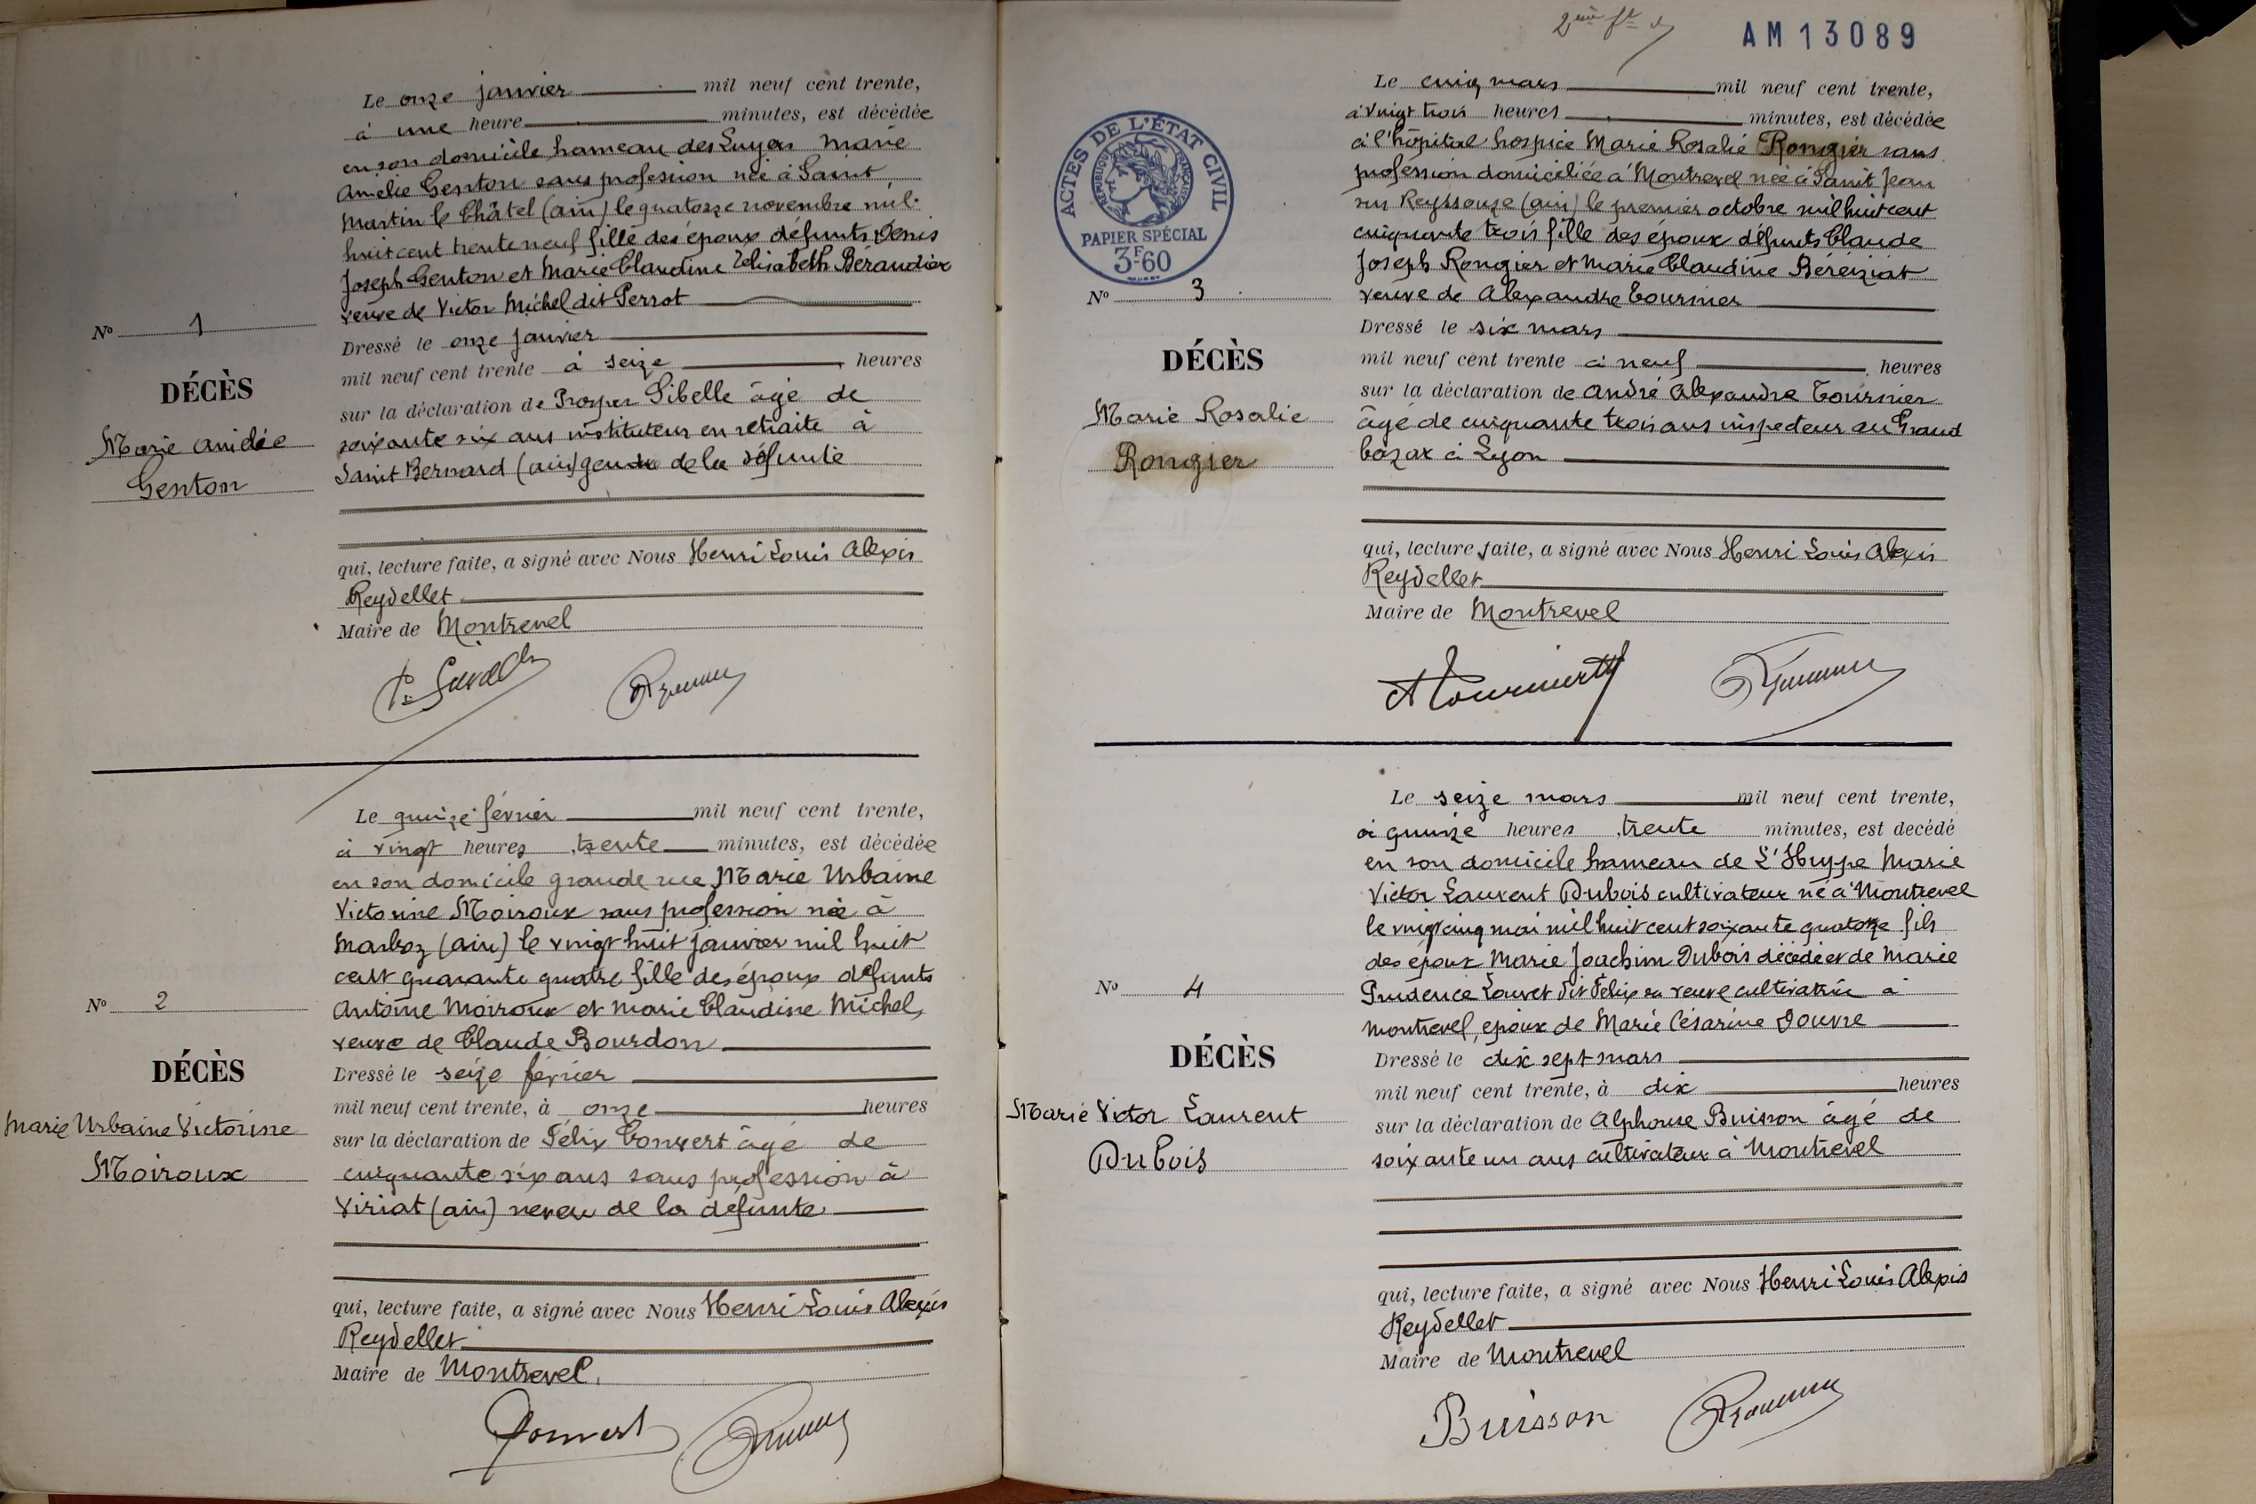 Le onze janvier mil neuf cent trente,
à une heure minutes, est décédée
en son domicile hameau des Luyers Marie
Amélie Genton sans profession née à Saint
Martin le Châtel (ain) le quatorze novembre mil
huit cent trente neuf fille des époux défunts Denis
Joseph Genton et Marie Claudine Elisabeth Béraudier
veuve de Victor Michel dit Perrot
Nº 1
Dressé le onze janvier
mil neuf cent trente à seize heures
DÉCÈS
sur la déclaration de Prosper Sibelle âgé de
Marie
soixante six ans instituteur en retraite à
Genton
Saint Bernard (ain) gendre de la défunte
qui, lecture faite, a signé avec Nous Henri Louis Alexis
Reydellet
Maire de Montrevel
Le quinze février mil neuf cent trente,
à vingt heures trente minutes, est décédée
en son domicile grande rue Marie Urbaine
Victorine Moiroux sans profession née à
Marboz (ain) le vingt huit janvier mil huit
cent quarante quatre fille des époux défunts
Nº 2
Antoine Moiroux et Marie Claudine Michel,
veuve de Claude Bourdon
DÉCÈS
Dressé le seize février
mil neuf cent trente, à onze heures
Marie Urbaine Victorine
sur la déclaration de Félix Convert âgé de
Moiroux
cinquante six ans sans profession à
Viriat (ain) neveu de la défunte
qui, lecture faite, a signé avec Nous Henri Louis Alexis
Reydellet
Maire de Montrevel
Convert
2ème ft
AM 13089
ACTES DE L'ÉTAT CIVIL
RÉPUBLIQUE FRANÇAISE
PAPIER SPÉCIAL
3F60
Le cinq mars mil neuf cent trente,
à vingt trois heures minutes, est décédée
à l'hôpital hospice Marie Rosalie Rongier sans
profession domiciliée à Montrevel née à Saint Jean
sur Reyssouze (ain) le premier octobre mil huit cent
cinquante trois fille des époux défunts Claude
Joseph Rongier et Marie Claudine Béréziat
Nº 3
veuve de Alexandre Tournier
Dressé le six mars
DÉCÈS
mil neuf cent trente à neuf heures
sur la déclaration de André Alexandre Tournier
Marie Rosalie
âgé de cinquante trois ans inspecteur au Grand
Rongier
bazar à Lyon
qui, lecture faite, a signé avec Nous Henri Louis Alexis
Reydellet
Maire de Montrevel
Le seize mars mil neuf cent trente,
à quinze heures trente minutes, est decédé
en son domicile hameau de L'Huppe Marie
Victor Laurent Dubois cultivateur né à Montrevel
le vingt cinq mai mil huit cent soixante quatorze fils
des époux Marie Joachim Dubois décédé et de Marie
Nº 4
Prudence Louvet dit Félix sa veuve cultivatrice à
Montrevel, époux de Marie Césarine Douvre
DÉCÈS
Dressé le dix sept mars
mil neuf cent trente, à dix heures
Marie Victor Laurent
sur la déclaration de Alphonse Buisson âgé de
Dubois
soixante un ans cultivateur à Montrevel
qui, lecture faite, a signé avec Nous Henri Louis Alexis
Reydellet
Maire de Montrevel
Buisson